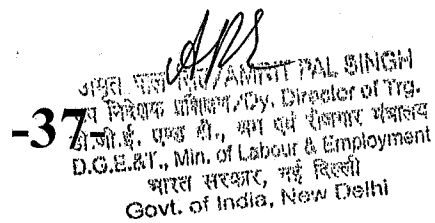 अमृत पाल सिंह/AMRIT PAL SINGH
उप निदेशक प्रशिक्षण/Dy. Director of Trg.
-37-
डी.जी.ई. एण्ड टी., श्रम एवं रोजगार मंत्रालय
D.G.E.&T., Min. of Labour & Employment
भारत सरकार, नई दिल्ली
Govt. of India, New Delhi